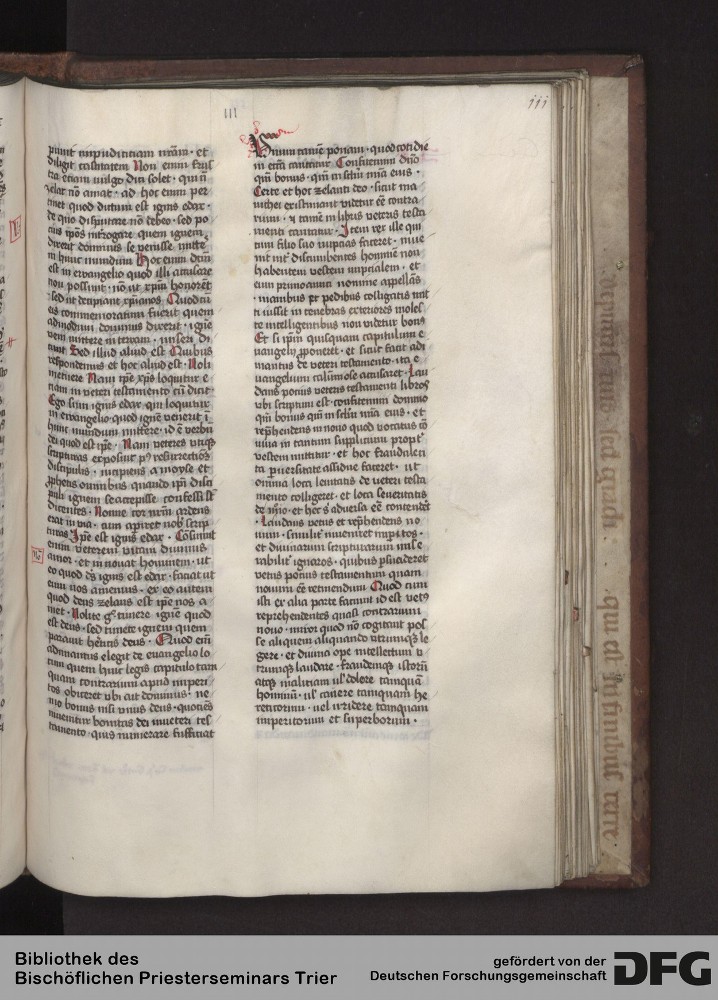 III
iii
punit impudicitiam nr̄am · et
diligit castitatem Non enim frus
tra etiam uulgo dici solet · qui n̄
zelat nō amat · ad hoc enim per
tinet quod dictum est ignis edax ·
de quo disputare nō debeo · sed po
cius ip̄os īt̄rogare quem ignem
dixerit dominus se uenisse mitt̄e
in hunc mundum Hoc enim dc̄m
est in ewangelio quod illi accusare
non possunt · nō ut xp̄m honorēt
sed ut decipiant xp̄ianos Quod cū
eis commemoratum fuerit quem
admodum dominus dixerit · ignē
veni mittere in terram · miseri di
cunt Sed illud aliud est Quibus
respondemus et hoc aliud est · Noli
metuere Nam ip̄e xp̄s loquitur e
tiam in veteri testamento cū dicit
Ego sum ignis edax qui loquitur
in ewangelio quod ignē venerit ī
hunc mundum mittere · id ē verbū
dei quod est ip̄e · Nam veteres utiqꝫ
scripturas exposuit pꝰ resurrectiōꝫ
discipulis · incipiens a moyse et
ꝓphetis omnibus quando ip̄i disci
puli ignem se accepisse confessi sūt
dicentes · Nonne cor nrm̄ ardens
erat in via · cum apiret nob̄ scrip
turas Ip̄e est ignis edax · Cōsumit
enim veterem vitam diuinus
amor · et innouat hominem · ut
eo quod ds̄ ignis est edax · faciat ut
eum nos amemus · ex eo autem
quod deus zelans est ip̄e nos a
met · Nolite gͦ timere ignē quod
est deus · sed timete ignem quem
parauit heͬticis deus · Quod em̄
adimantus elegit de euangelio lo
cum quem huic legis capitulo tam
quam contrarium apud imperi
tos obiceret vbi ait dominus · ne
mo bonus nisi vnus deus · quociēs
inuenitur bonitas dei in ueteri tes
tamento · quis numerare sufficiat
Vnum tamē ponam · quod cotidie
in ecc̄ia cantatur Confitemini dn̄o
qm̄ bonus · qm̄ in sc̄lm mīa eius ·
Certe et hoc zelanti deo · sicut ma
nichei existimant videtur eē contra
rium · ⁊ tamē in libris veteris testa
menti cantatur · Item rex ille qui
cum filio suo nupcias faceret · inue
nit int̄ discumbentes hominē non
habentem vestem nupcialem · et
eum primo amici nomine appellās
· manibus pt pedibus colligatis mit
ti iussit in tenebras exteriores moles
te intelligentibus non videtur bonꝰ
Et si ip̄m quisquam capitulum e
uangelij ꝓponeret · et sicut facit adi
mantus de veteri testamento · ita e
uangelium calūniose accusaret · Lau
dans pocius veteris testamenti libroꝫ
vbi scriptum est · confitemini domino
qm̄ bonus qm̄ in sc̄lm mīa eius · et
rep̄hendens in nouo quod vocatus cō
uiua in tantum supplicium propt̄
vestem mittitur · et hoc fraudulen
ta ꝑuersitate assidue faceret · ut
omnia loca lenitatis de ueteri testa
mento colligeret · et loca seueritatis
de nouo · et hec s̄ aduersa eē contendēt
· Laudans vetus et rep̄hendens no
uum · similit̄ inueniret imp̄itos ·
et diuinarum scripturarum mise
rabilit̄ ignaros · quibus p̄suaderet
vetus pocius testamentum quam
nouum ēē retinendum Quod cum
isti ex alia parte faciunt id est vetꝰ
reprehendentes quasi contrarium
nouo · miror quod nō cogitant pos
se aliquem aliquando vtrumqꝫ le
gere · et diuina ope intellectum v
trumqꝫ laudare · fraudemqꝫ istorū
atqꝫ maliciam ul̓ dolere tamquā
hominū · ul̓ cauere tamquam he
reticorum · uel irridere tamquam
imperitorum et superborum ·
Bibliothek des
Bischöflichen Priesterseminars Trier
gefördert von der
Deutschen Forschungsgemeinschaft
DFG